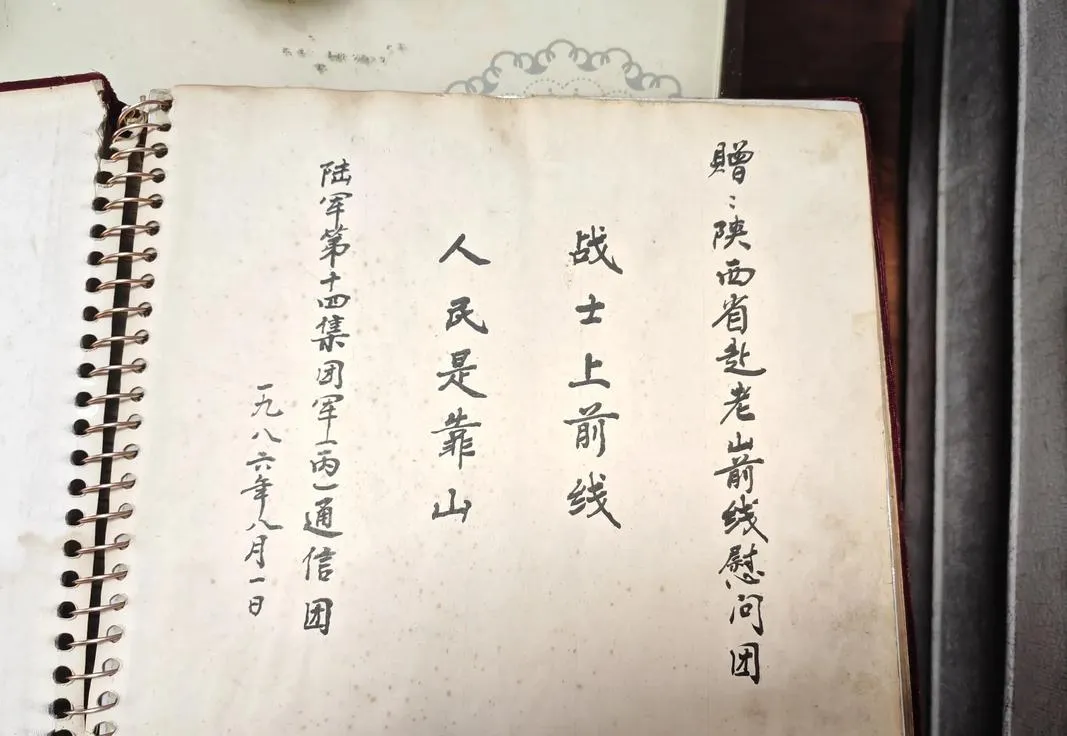 贈：陕西省赴老山前线慰问团
战士上前线
人民是靠山
陆军第十四集团军（丙）通信团
一九八六年八月一日